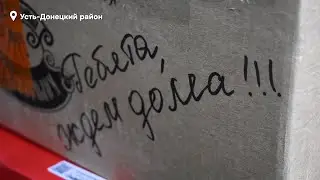 Усть-Донецкий район
Ребята,
ждем дома!!!